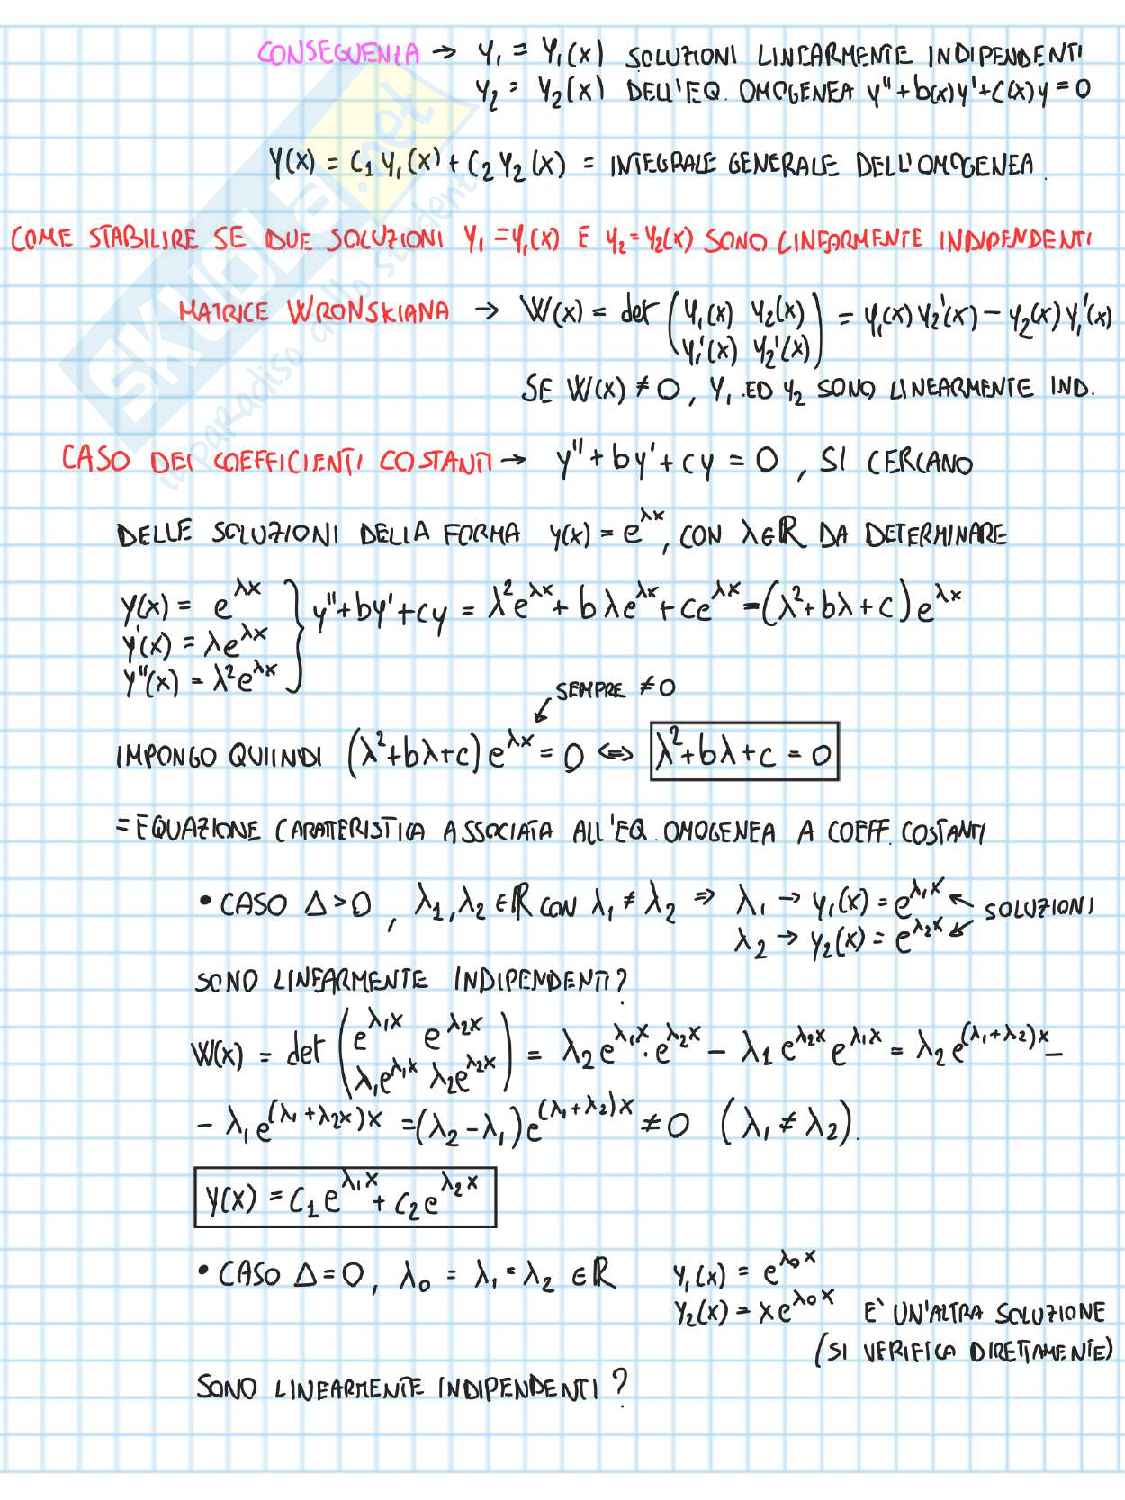 CONSEGUENZA → y₁ = y₁(x) SOLUZIONI LINEARMENTE INDIPENDENTI
y₂ = y₂(x) DELL'EQ. OMOGENEA y'' + b(x)y' + c(x)y = 0
y(x) = c₁y₁(x) + c₂y₂(x) = INTEGRALE GENERALE DELL'OMOGENEA.
COME STABILIRE SE DUE SOLUZIONI y₁ = y₁(x) E y₂ = y₂(x) SONO LINEARMENTE INDIPENDENTI
MATRICE WRONSKIANA → W(x) = det (y₁(x) y₂(x) / y₁'(x) y₂'(x)) = y₁(x)y₂'(x) − y₂(x)y₁'(x)
SE W(x) ≠ 0, y₁ ED y₂ SONO LINEARMENTE IND.
CASO DEI COEFFICIENTI COSTANTI → y'' + by' + cy = 0, SI CERCANO
DELLE SOLUZIONI DELLA FORMA y(x) = e^{λx}, CON λ∈ℝ DA DETERMINARE
y(x) = e^{λx}
y'(x) = λe^{λx} } y'' + by' + cy = λ²e^{λx} + bλe^{λx} + ce^{λx} = (λ² + bλ + c)e^{λx}
y''(x) = λ²e^{λx}
SEMPRE ≠ 0
IMPONGO QUIINDI (λ² + bλ + c)e^{λx} = 0 ⇔ λ² + bλ + c = 0
= EQUAZIONE CARATTERISTICA ASSOCIATA ALL'EQ. OMOGENEA A COEFF. COSTANTI
• CASO Δ > 0, λ₁, λ₂ ∈ ℝ CON λ₁ ≠ λ₂ ⇒ λ₁ → y₁(x) = e^{λ₁x} ← SOLUZIONI
λ₂ → y₂(x) = e^{λ₂x} ↙
SONO LINEARMENTE INDIPENDENTI?
W(x) = det (e^{λ₁x} e^{λ₂x} / λ₁e^{λ₁x} λ₂e^{λ₂x}) = λ₂e^{λ₁x} · e^{λ₂x} − λ₁e^{λ₂x}e^{λ₁x} = λ₂e^{(λ₁+λ₂)x} −
− λ₁e^{(λ₁+λ₂x)x} = (λ₂ − λ₁)e^{(λ₁+λ₂)x} ≠ 0 (λ₁ ≠ λ₂).
y(x) = c₁e^{λ₁x} + c₂e^{λ₂x}
• CASO Δ = 0, λ₀ = λ₁ = λ₂ ∈ ℝ y₁(x) = e^{λ₀x}
y₂(x) = xe^{λ₀x} E' UN'ALTRA SOLUZIONE
(SI VERIFICA DIRETTAMENTE)
SONO LINEARMENTE INDIPENDENTI?
SKUOLA.net
il paradiso dello studente